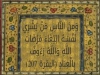 ومن الناس من يشري
نفسه ابتغاء مرضات
الله والله رءوف
بالعباد البقرة 207